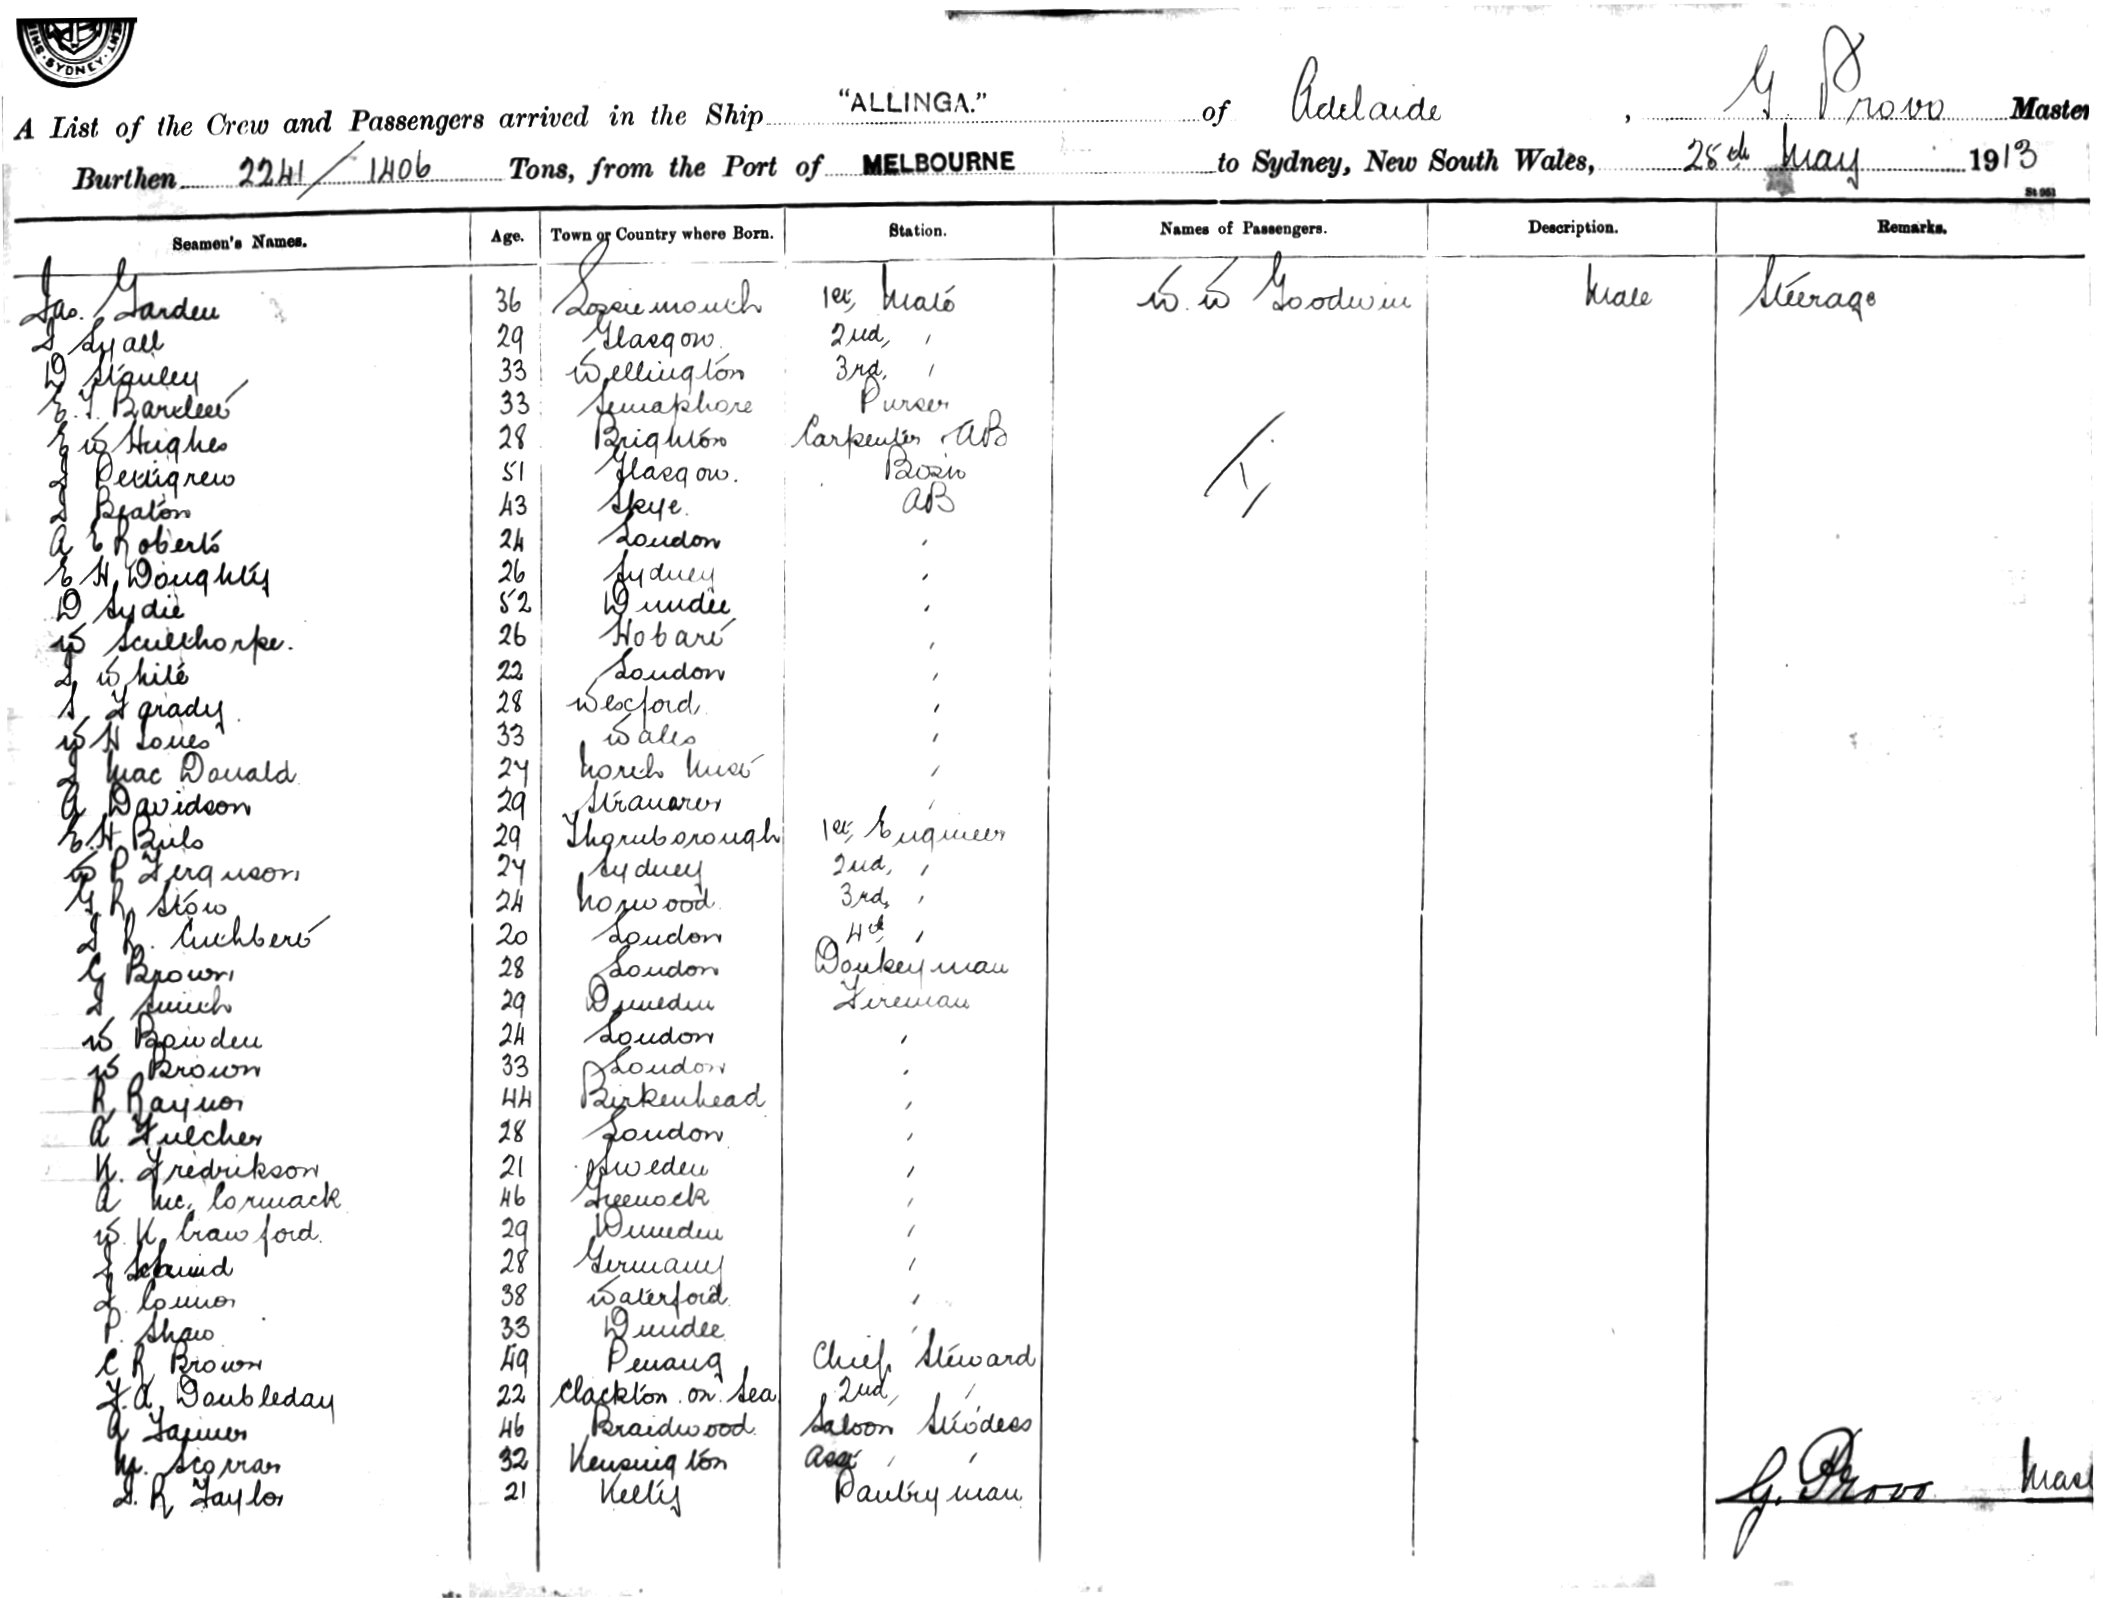 SYDNEY
A List of the Crew and Passengers arrived in the Ship "ALLINGA." of Adelaide, G Provo Master
Burthen 2241/1406 Tons, from the Port of MELBOURNE to Sydney, New South Wales, 28th May 1913
St 953
Seamen's Names. Age. Town or Country where Born. Station. Names of Passengers. Description. Remarks.
Jas. Garden 36 Lossiemouth 1st, Mate W. W Goodwin Male Steerage
J Lyall 29 Glasgow 2nd, "
D Stanley 33 Wellington 3rd, "
E. J. Bartlett 33 Semaphore Purser
E W Hughes 28 Brighton Carpenter AB
J Pettigrew 51 Glasgow. Bosin
J Beaton 43 Skye. AB
A E Roberts 24 London "
E H Doughty 26 Sydney "
D Sydie 52 Dundee "
W Sculthorpe. 26 Hobart "
J White 22 London "
S Fgrady 28 Wexford "
W H Jones 33 Wales "
J MacDonald 27 North Uist "
A Davidson 29 Stranarer "
E. H 29 Thornborough 1st, Engineer
W P Ferguson 27 Sydney 2nd, "
G R Stow 24 Norwood 3rd, "
J R. Cuthbert 20 London 4th "
G Brown 28 London Donkeyman
J Smith 29 Dunedin Fireman
W Bowden 24 London "
W Brown 33 London "
R Raynor 44 Birkenhead "
A Fulcher 28 London "
K. Fredrikson 21 Sweden "
A Mc, Cormack 46 Greenock "
W. K Crawford. 29 Dunedin "
J Schmid 28 Germany "
J. Connor 38 Waterford "
P. Shaw 33 Dundee "
C R Brown 49 Penang Chief, Steward
F. A, Doubleday 22 Clackton. on. Sea 2nd, "
A Farmer 46 Braidwood Saloon Stiodess
M. 32 Kensington Asst " "
J. R Taylor 21 Kelty Pantryman
G. Provo Mast